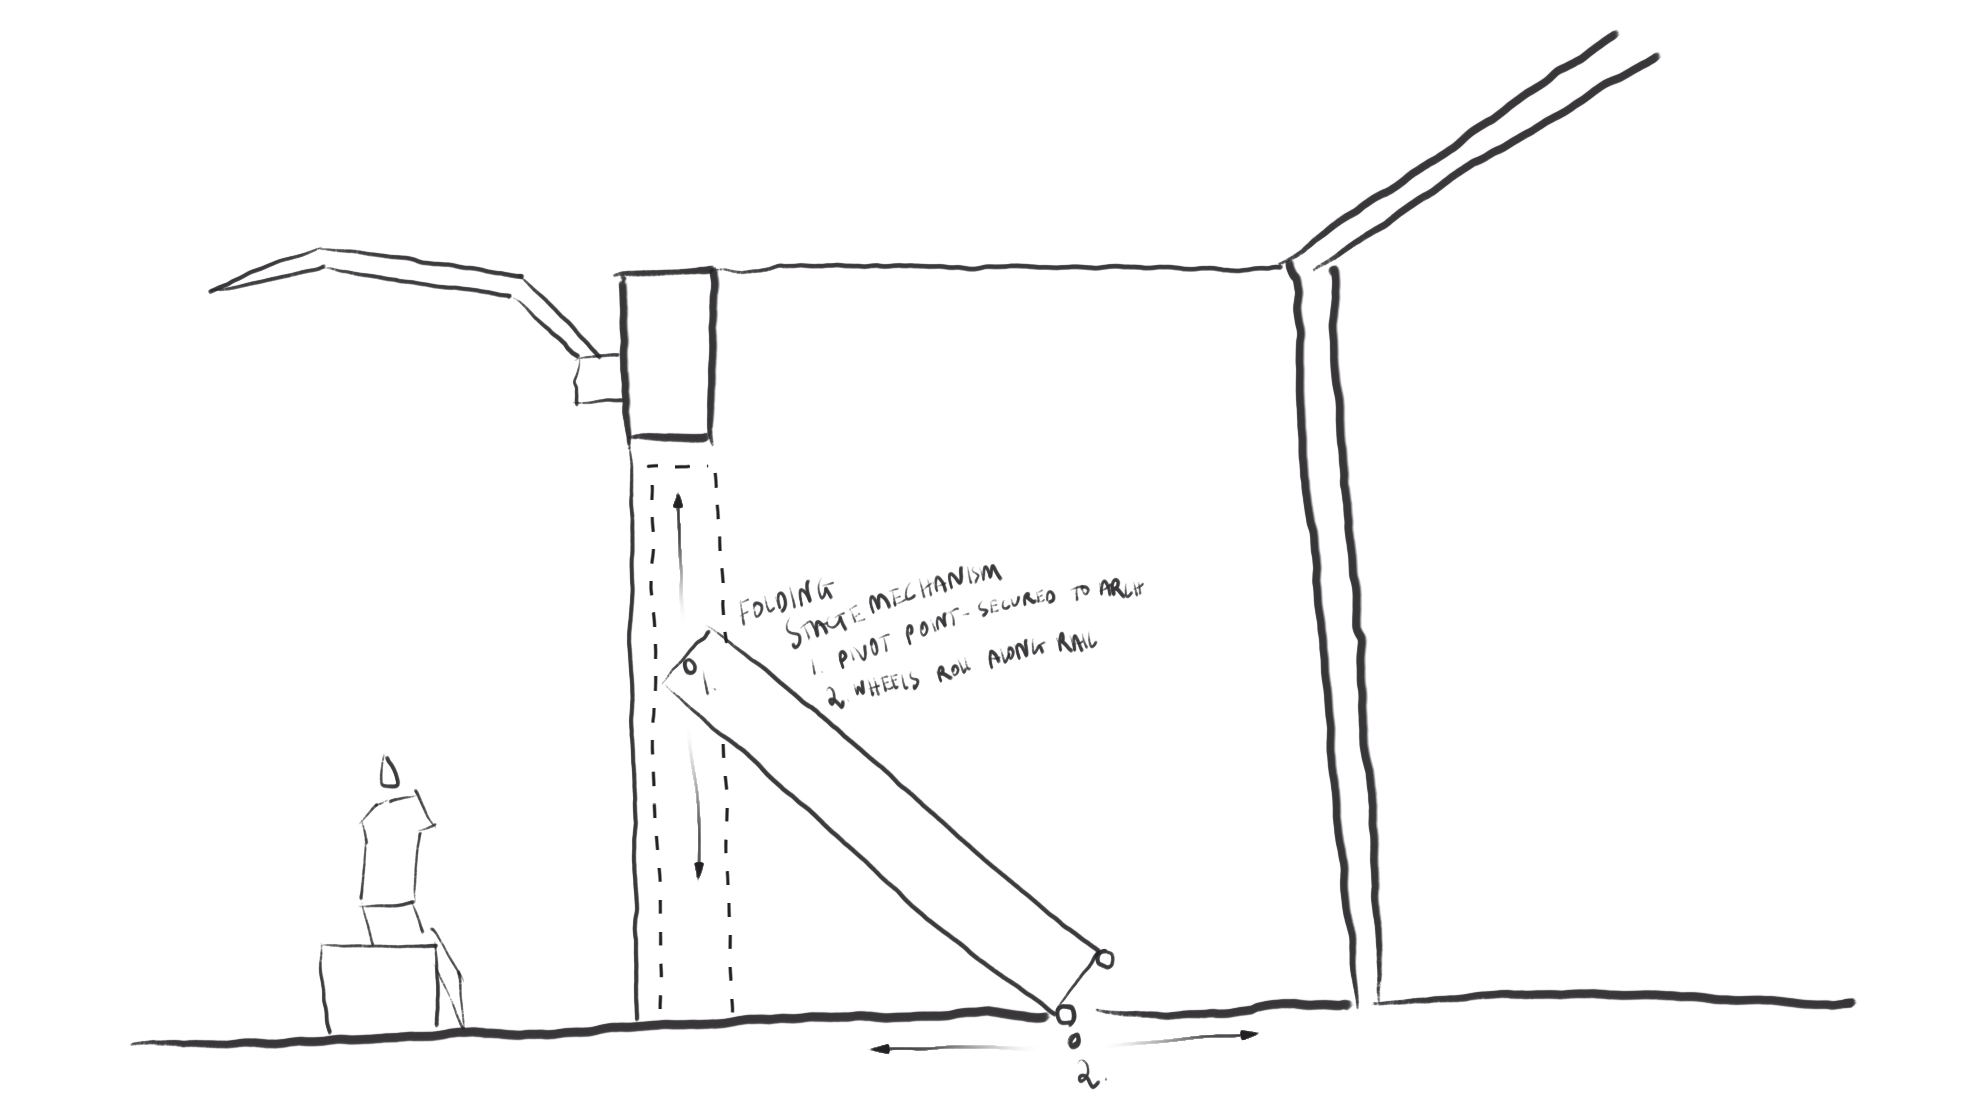 FOLDING
STAGE MECHANISM
1. PIVOT POINT - SECURED TO ARCH
2. WHEELS ROLL ALONG RAIL
1.
2.